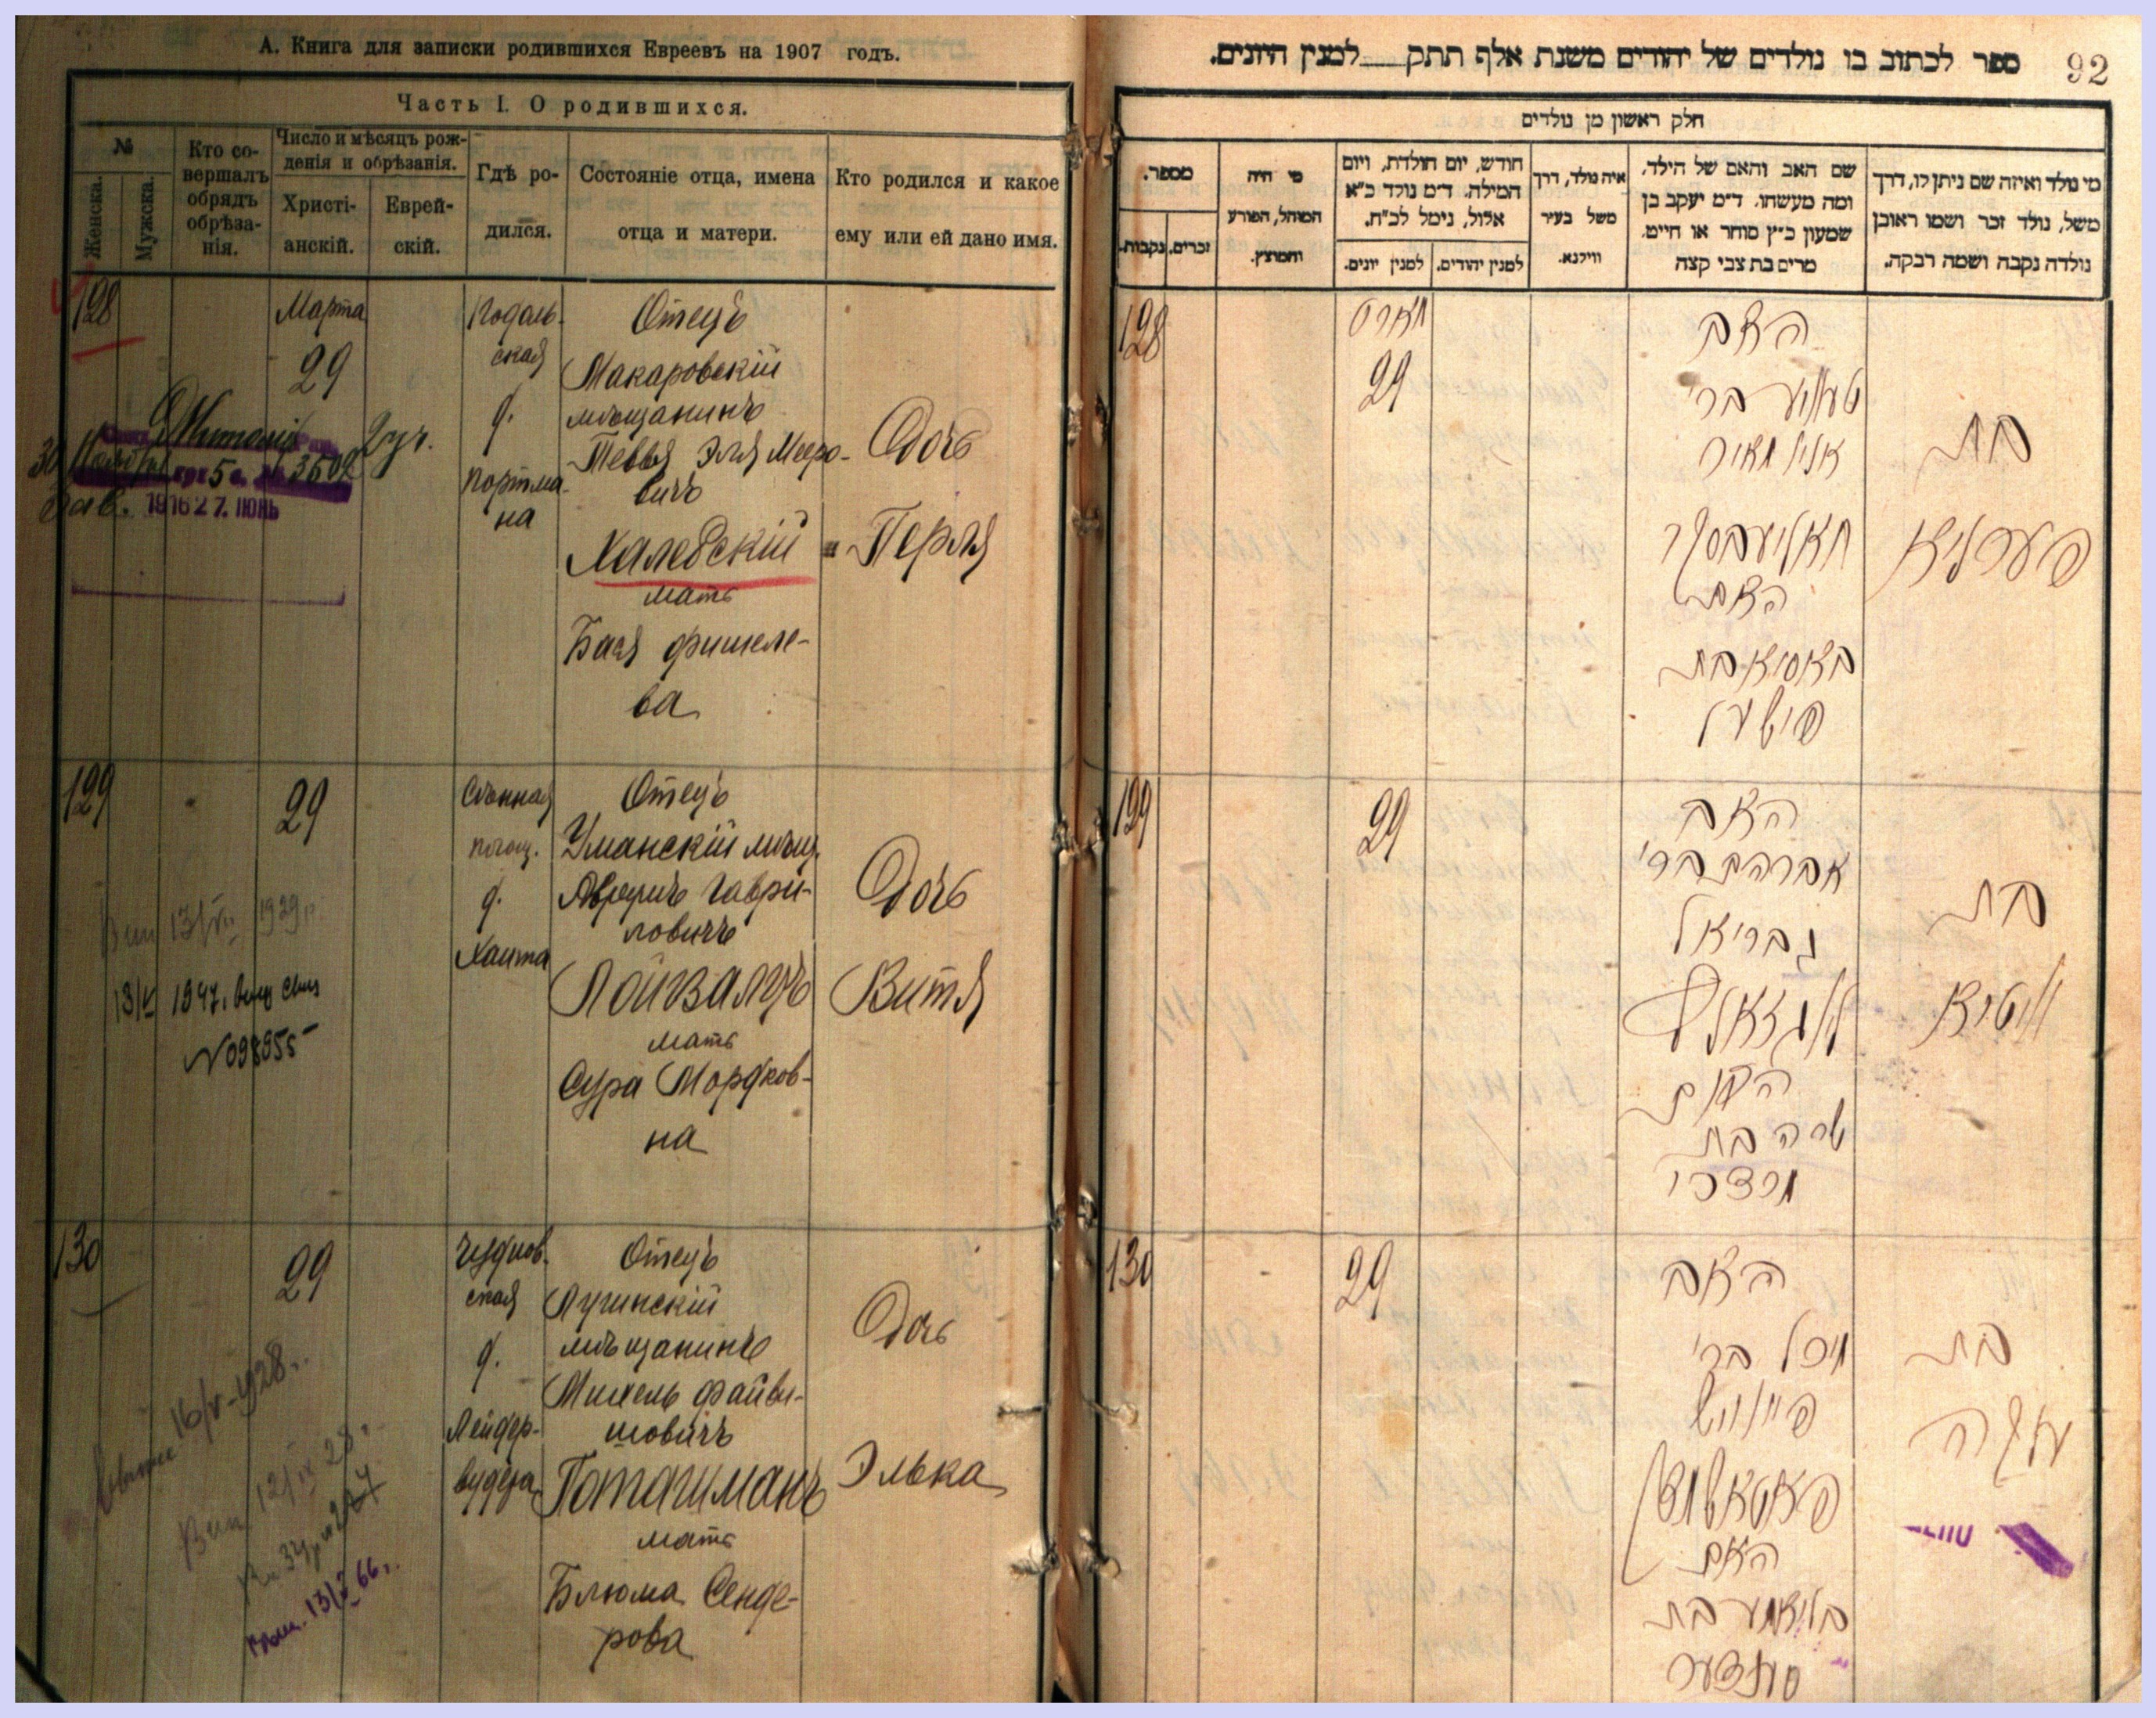 А. Книга для записки родившихся Евреевъ на 1907 годъ.
Часть I. О родившихся.
№
Женска.
Мужска.
Кто со-
вершалъ
обрядъ
обрѣза-
нія.
Число и мѣсяцъ рож-
денія и обрѣзанія.
Христі-
анскій.
Еврей-
скій.
Гдѣ ро-
дился.
Состояніе отца, имена
отца и матери.
Кто родился и какое
ему или ей дано имя.
128
Марта
29
Подоль-
ская
д.
Портма-
на
Отецъ
Макаровскій
мѣщанинъ
Тевья Эля Мееро-
вичъ
Халебскій
мать
Бася Фишеле-
ва
Дочь
Перля
1916 27. ІЮНЬ
129
29
Сѣнная
площ.
д.
Хаита
Отецъ
Уманскій мѣщ.
Аврумъ Гаври-
ловичъ
Лойзалцъ
мать
Сура Мордков-
на
Дочь
Витя
13/VII 1929 г.
13/V 1947 г.
N 098955
130
29
Чуднов-
ская
д.
Лейдер-
вудера
Отецъ
Лугинскій
мѣщанинъ
Михель Файви-
шовичъ
Поташманъ
мать
Блюма Сенде-
рова
Дочь
Элька
16/V-1928 г.
12/IX 28 г.
13/X 66 г.
92
ספר לכתוב בו נולדים של יהודים משנת אלף תתק למנין היונים.
חלק ראשון מן נולדים
מספר.
נקבות.
זכרים.
מי היה
המוהל, הפורע
והמוצץ.
חודש, יום הולדת, ויום
המילה. ד״מ נולד כ״א
אלול, נימל לכ״ח.
למנין יונים.
למנין יהודים.
איה נולד, דרך
משל בעיר
ווילנא.
שם האב והאם של הילד,
ומה מעשהו. ד״מ יעקב בן
שמעון כ״ץ סוחר או חייט.
מרים בת צבי קצה
מי נולד ואיזה שם ניתן לו, דרך
משל, נולד זכר ושמו ראובן
נולדה נקבה ושמה רבקה.
128
מארט
29
האב
טעוויע ברי
אליל מאיר
האם
באסיא בת
פישעל
בת
פערליא
129
29
האב
אברהם ברי
גבריאל
האם
שרה בת
מרדכי
בת
וויטיא
130
29
האב
מיכל ברי
פייוויש
פאטאשמאן
האם
בליומע בת
סענדער
בת
עלקה